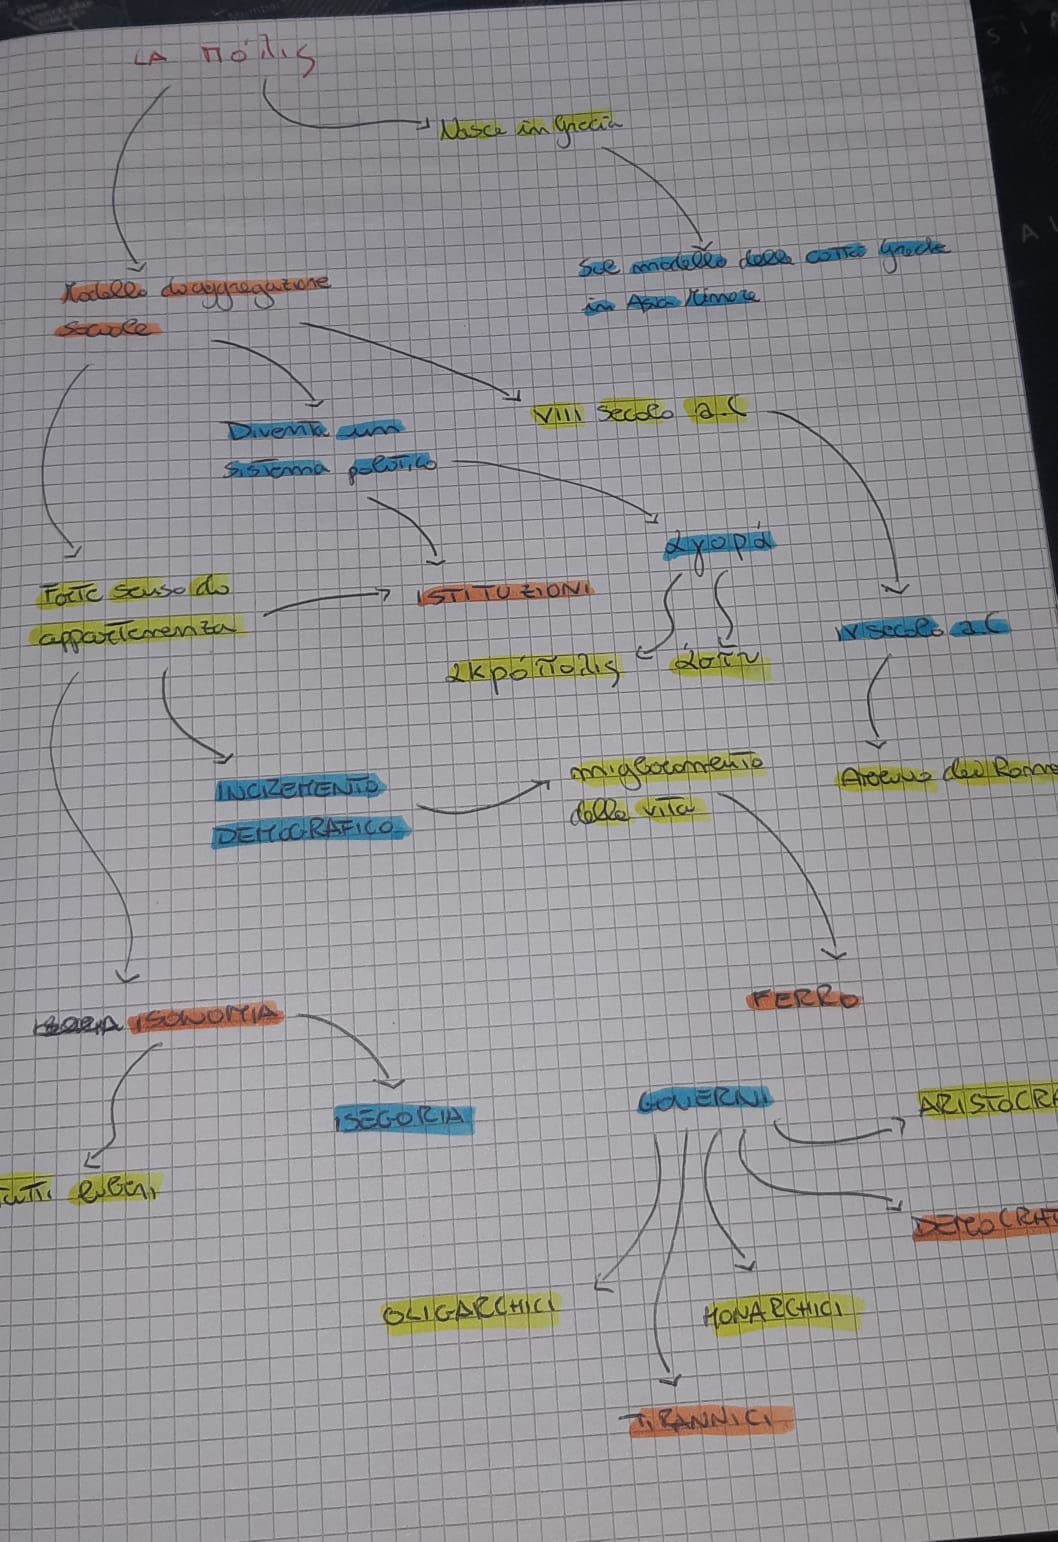 LA πόλις
Nasce in Grecia
Sul modello delle città greche
in Asia Minore
Modello di aggregazione
sociale
VIII secolo a.C
Diventa un
sistema politico
ἀγορά
Forte senso di
appartenenza
ISTITUZIONI
IV secolo a.C
ἀκρόπολις
ἄστυ
INCREMENTO
DEMOGRAFICO
miglioramento
della vita
Arrivo dei Roma
FERRO
ISONOMIA
ISEGORIA
GOVERNI
ARISTOCRA
tutti liberi
DEMOCRAT
OLIGARCHICI
MONARCHICI
TIRANNICI